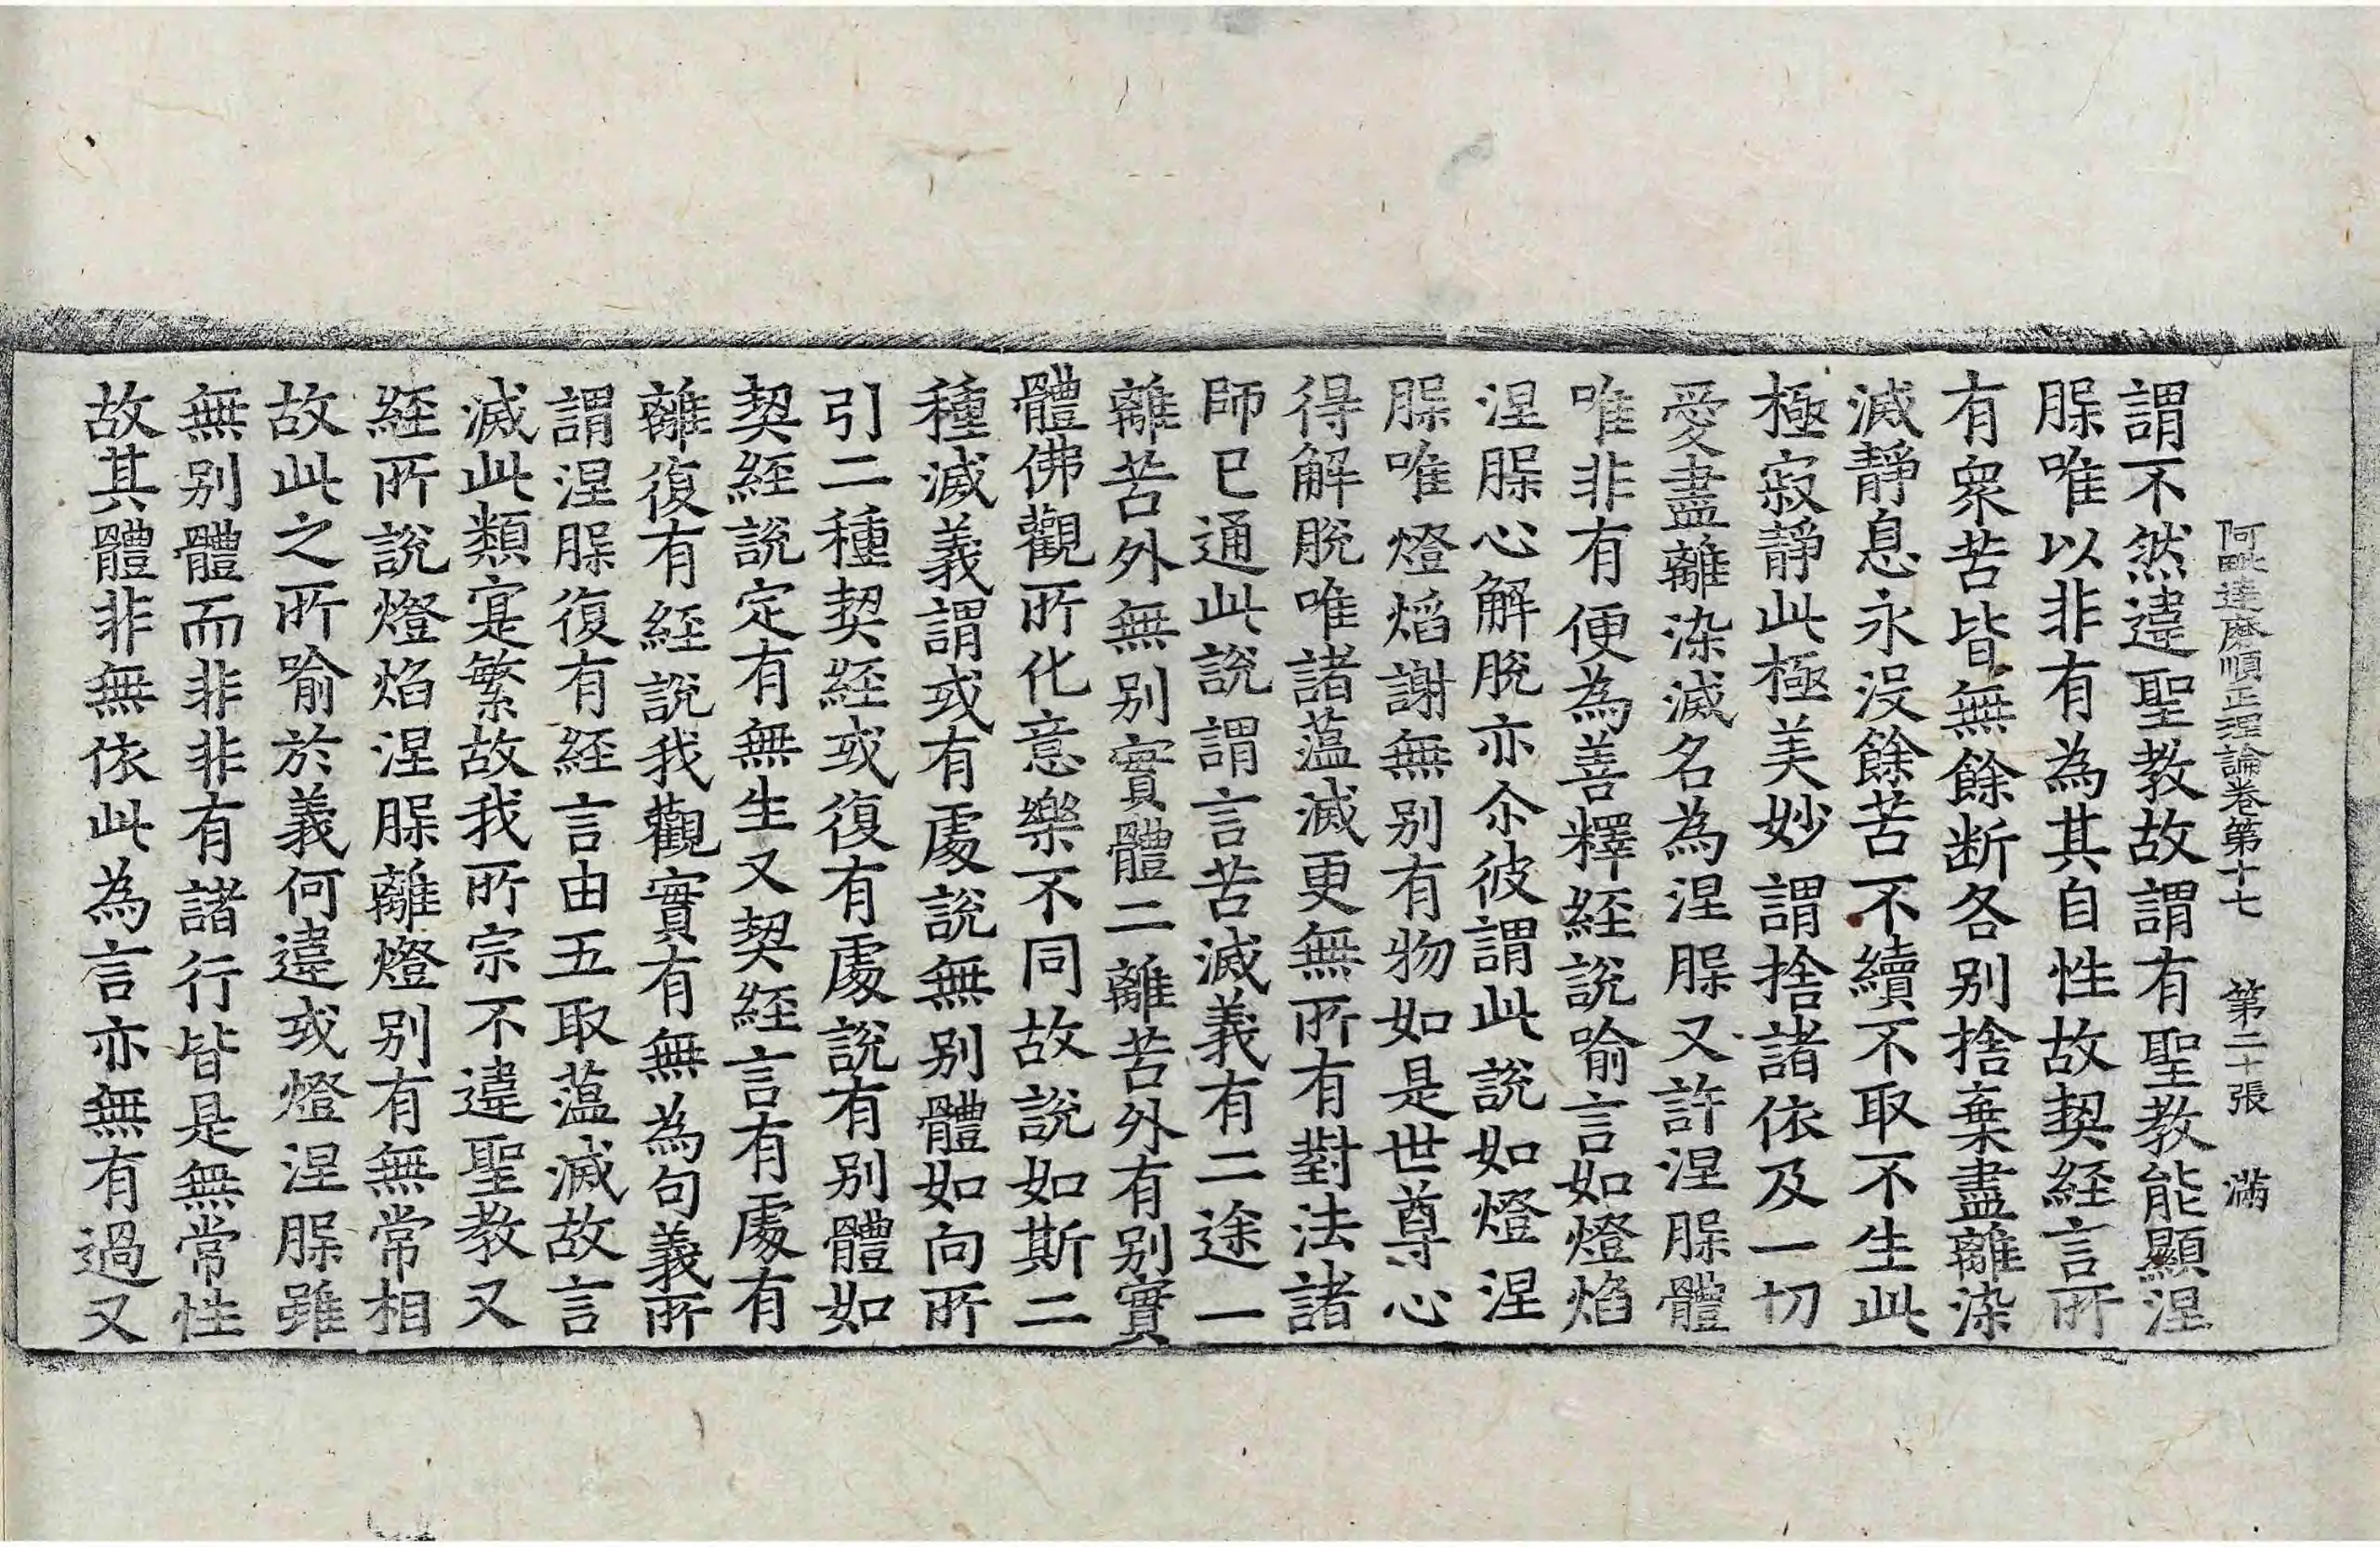 阿毗達磨順正理論卷第十七　第二十張　滿
謂不然違聖教故謂有聖教能顯涅
槃唯以非有為其自性故契經言所
有衆苦皆無餘断各别捨棄盡離染
滅靜息永没餘苦不續不取不生此
極寂靜此極美妙謂捨諸依及一切
愛盡離染滅名為涅槃又許涅槃體
唯非有便為善釋經說喻言如燈焰
涅槃心解脫亦尒彼謂此說如燈涅
槃唯燈焰謝無别有物如是世尊心
得解脫唯諸蘊滅更無所有對法諸
師已通此說謂言苦滅義有二途一
離苦外無别實體二離苦外有别實
體佛觀所化意樂不同故說如斯二
種滅義謂或有處說無别體如向所
引二種契經或復有處說有别體如
契經說定有無生又契經言有處有
離復有經說我觀實有無為句義所
謂涅槃復有經言由五取蘊滅故言
滅此類寔繁故我所宗不違聖教又
經所說燈焰涅槃離燈别有無常相
故此之所喻於義何違或燈涅槃雖
無别體而非非有諸行皆是無常性
故其體非無依此為言亦無有過又